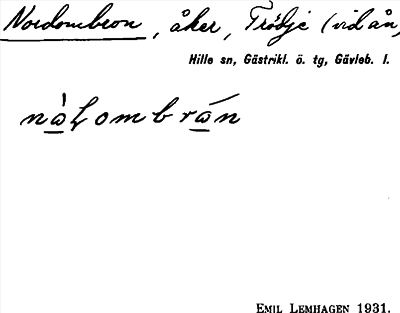 Nordombron, åker, Trödje (vid ån)
Hille sn, Gästrikl. ö. tg, Gävleb. l.
EMIL LEMHAGEN 1931.